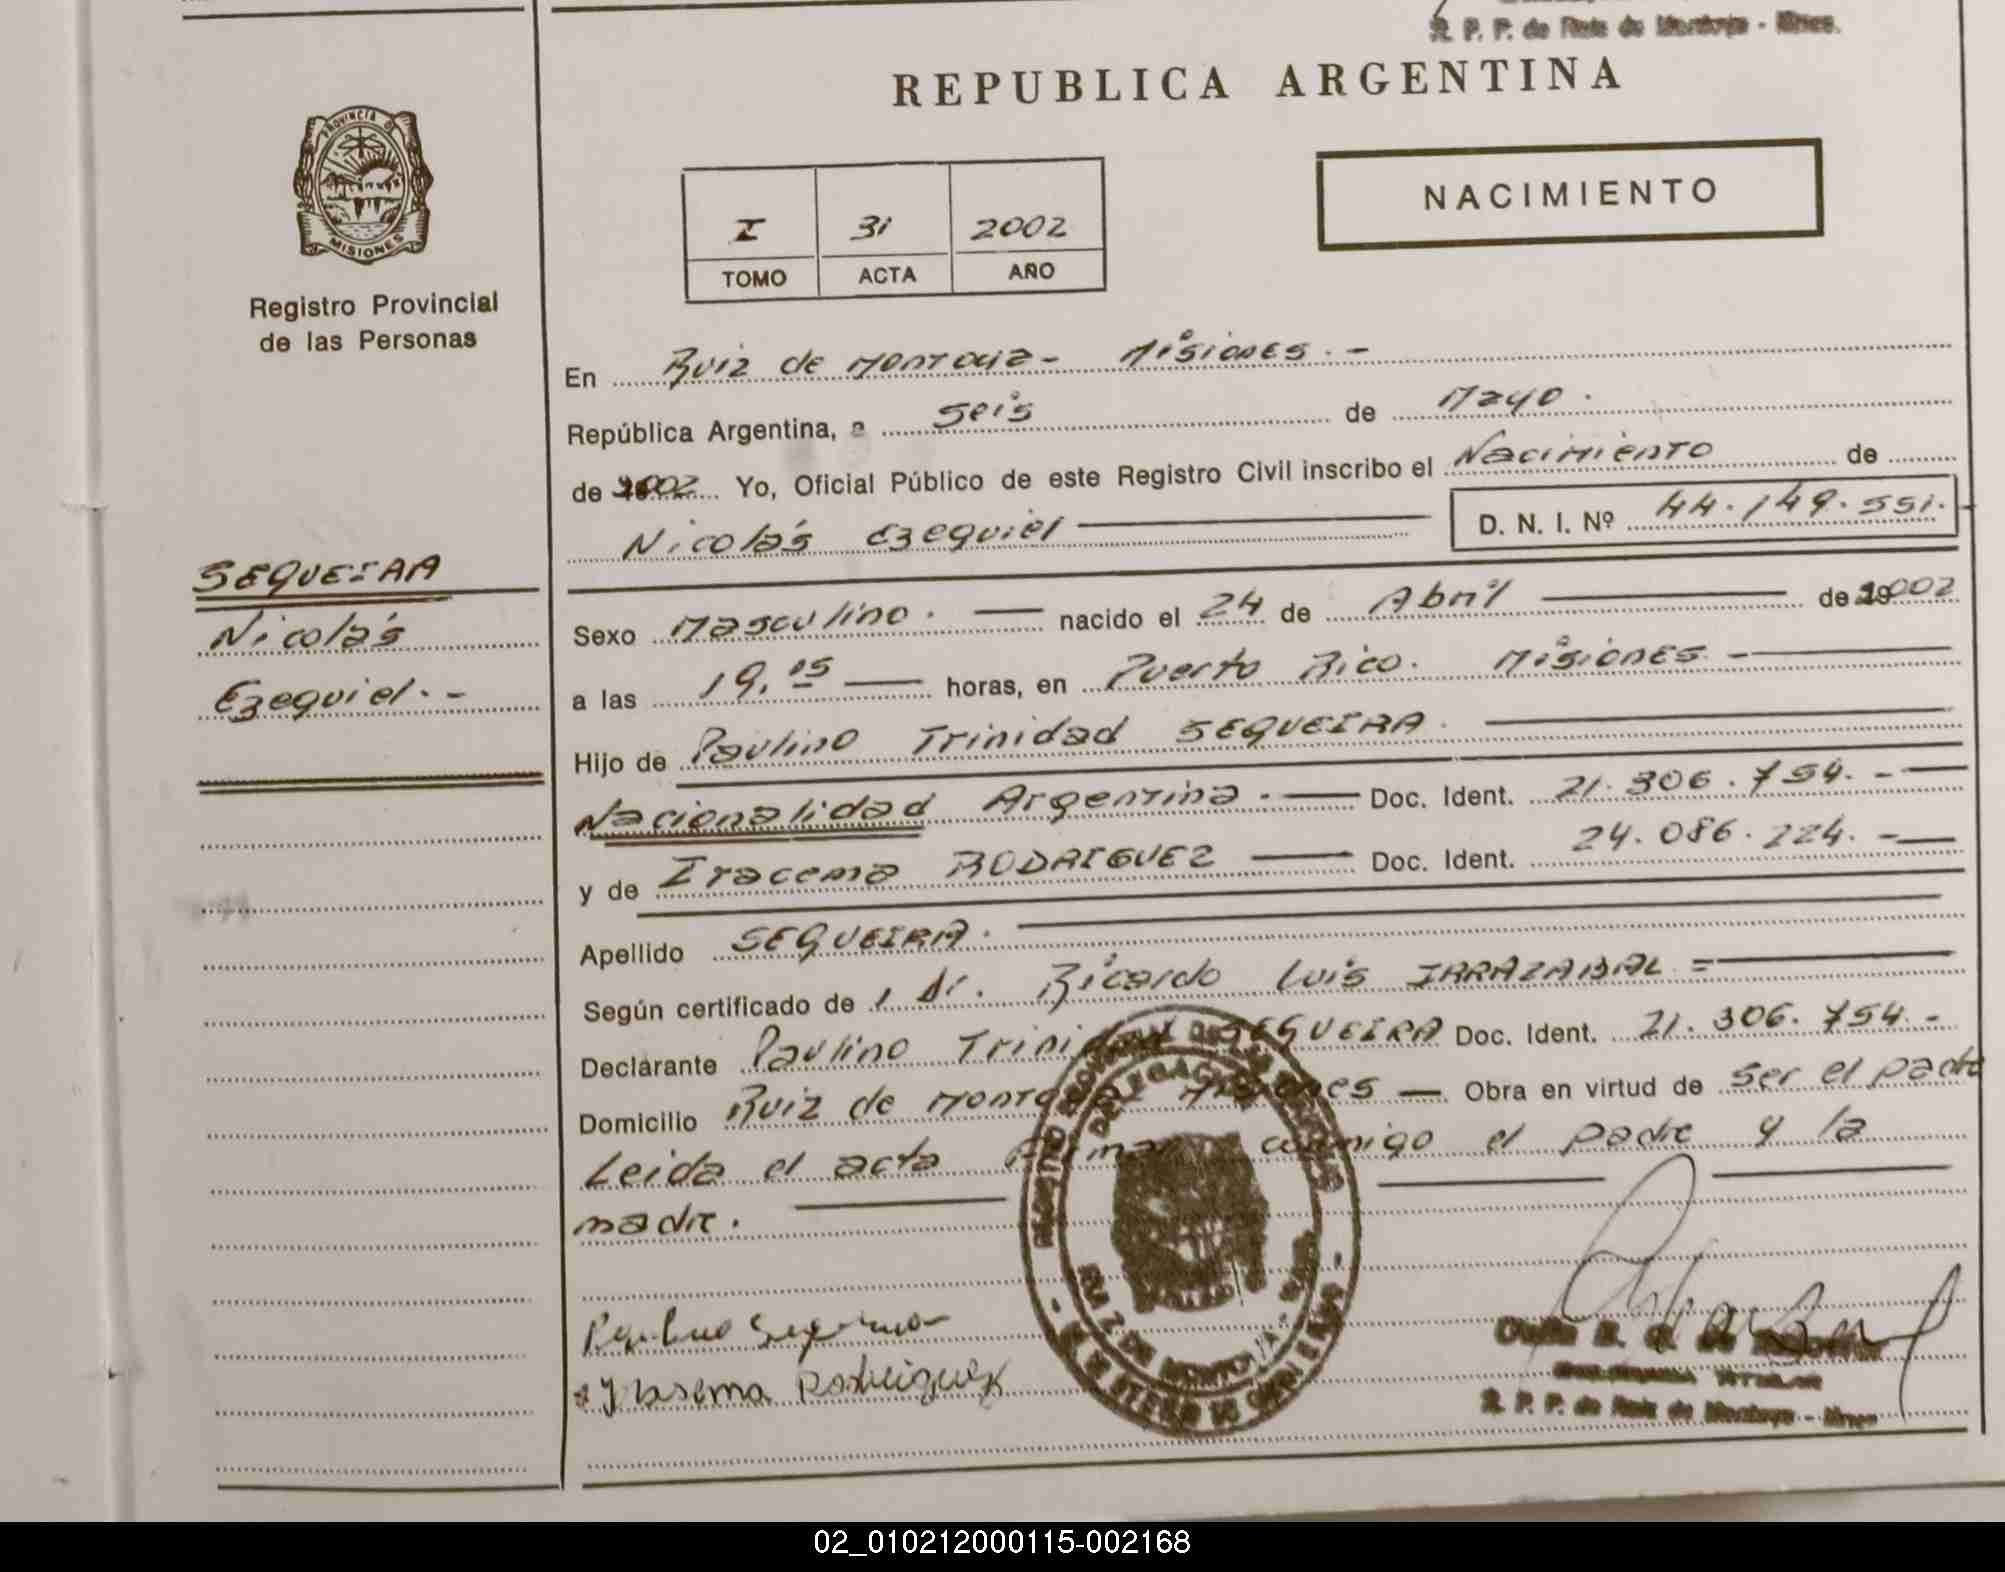 R. P. P. de Ruiz de Montoya - Mnes.
REPUBLICA ARGENTINA
PROVINCIA DE
MISIONES
NACIMIENTO
I 31 2002
TOMO ACTA AÑO
Registro Provincial
de las Personas
En Ruiz de Montoya - Misiones. -
República Argentina, a seis de Mayo.
de 2002 Yo, Oficial Público de este Registro Civil inscribo el Nacimiento de
Nicolás Ezequiel D. N. I. Nº 44.149.551.
SEQUEIRA
Nicolás
Ezequiel. -
Sexo Masculino. nacido el 24 de Abril de 2002
a las 19,05 horas, en Puerto Rico. Misiones -
Hijo de Paulino Trinidad SEQUEIRA.
Nacionalidad Argentina. Doc. Ident. 21.306.754. -
y de Iracema RODRIGUEZ Doc. Ident. 24.086.224. -
Apellido SEQUEIRA.
Según certificado de Dr. Ricardo Luis IRRAZABAL =
Declarante Paulino Trinidad SEQUEIRA Doc. Ident. 21.306.754. -
Domicilio Ruiz de Montoya Misiones Obra en virtud de ser el padre
Leida el acta firman conmigo el padre y la
madre.
DELEGACION
RUIZ DE MONTOYA
Paulino Sequeira
Irasema Rodriguez
R. P. P. de Ruiz de Montoya - Mnes
02_010212000115-002168